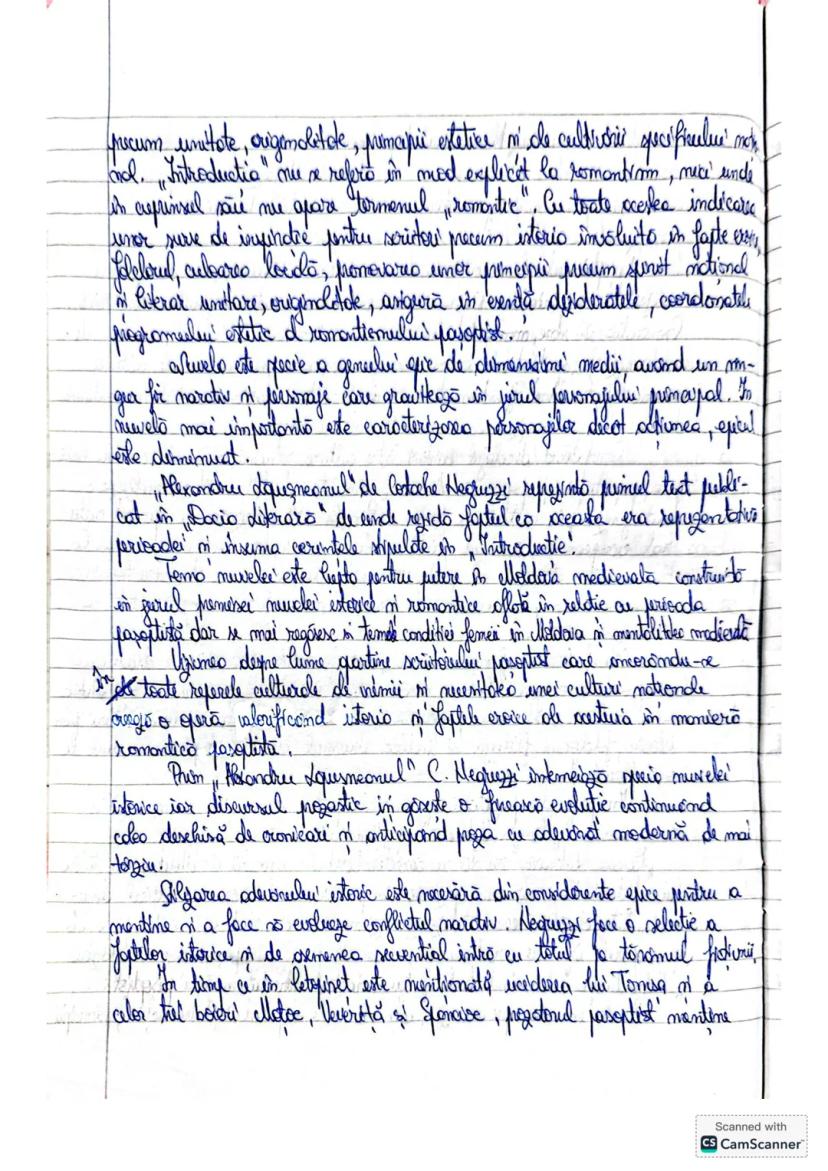 precum unitate, originalitate, principii estetice și de cultivării specificului națio
nal. „Introducția" nu se referă în mod explicit la romantism, nici unde
în cuprinsul său nu apare termenul „romantic". Cu toate acestea indicarea
unor surse de inspirație pentru scriitori precum istoria învăluită în fapte eroice,
folclorul, culoarea locală, promovarea unor principii precum spirit național
și literar unitare, originalitate, asigură în esență dezideratele, coordonatele
programului estetic al romantismului pașoptist.
Nuvela este specie a genului epic de dimensiuni medii, având un sin-
gur fir narativ și personaje care gravitează în jurul personajului principal. În
nuvelă mai importantă este caracterizarea personajelor decât acțiunea, epicul
este diminuat.
„Alexandru Lăpușneanul" de Costache Negruzzi reprezintă primul text publi-
cat în „Dacia Literară" de unde rezidă faptul ca aceasta era reprezentativă
perioadei și însuma cerințele stipulate în „Introducție".
Tema nuvelei este lupta pentru putere în Moldova medievală construită
în jurul premisei nuvelei istorice și romantice aflată în relație cu perioada
pașoptistă dar se mai regăsesc și temele condiției femeii în Moldova și mentalității medievale
Viziunea despre lume aparține scriitorului pașoptist care ancorându-se
în toate reperele culturale de vremii și necesitatea unei culturi naționale
crează o operă valorificând istoria și faptele eroice ale acestuia în manieră
romantică pașoptistă.
Prin „Alexandru Lăpușneanul" C. Negruzzi întemeiază specia nuvelei
istorice iar discursul prozastic își găsește o firească evoluție continuând
calea deschisă de cronicari și anticipând proza cu adevărat modernă de mai
târziu.
Stilizarea adevărului istoric este necesară din considerente epice pentru a
menține și a face să evolueze conflictul narativ. Negruzzi face o selecție a
faptelor istorice și de asemenea secvențial intră cu totul pe tărâmul ficțiunii.
În timp ce în letopiseț este menționată uciderea lui Tomșa și a
celor trei boieri Moțoc, Veveriță și Spancioc, prozatorul pașoptist menține
Scanned with
CS CamScanner